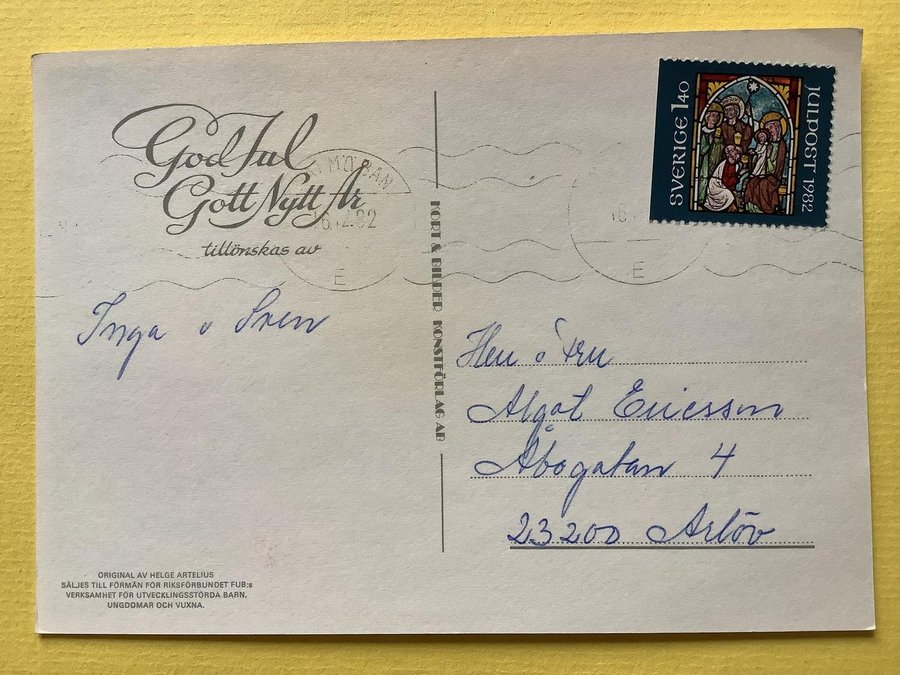 God Jul
Gott Nytt År
tillönskas av
Inga o Sven
ORIGINAL AV HELGE ARTELIUS
SÄLJES TILL FÖRMÅN FÖR RIKSFÖRBUNDET FUB:s
VERKSAMHET FÖR UTVECKLINGSSTÖRDA BARN,
UNGDOMAR OCH VUXNA.
KORT & BILDER KONSTFÖRLAG AB
SVERIGE 140
JULPOST 1982
E
E
Herr o Fru
Algot Ericsson
Åbogatan 4
23200 Arlöv